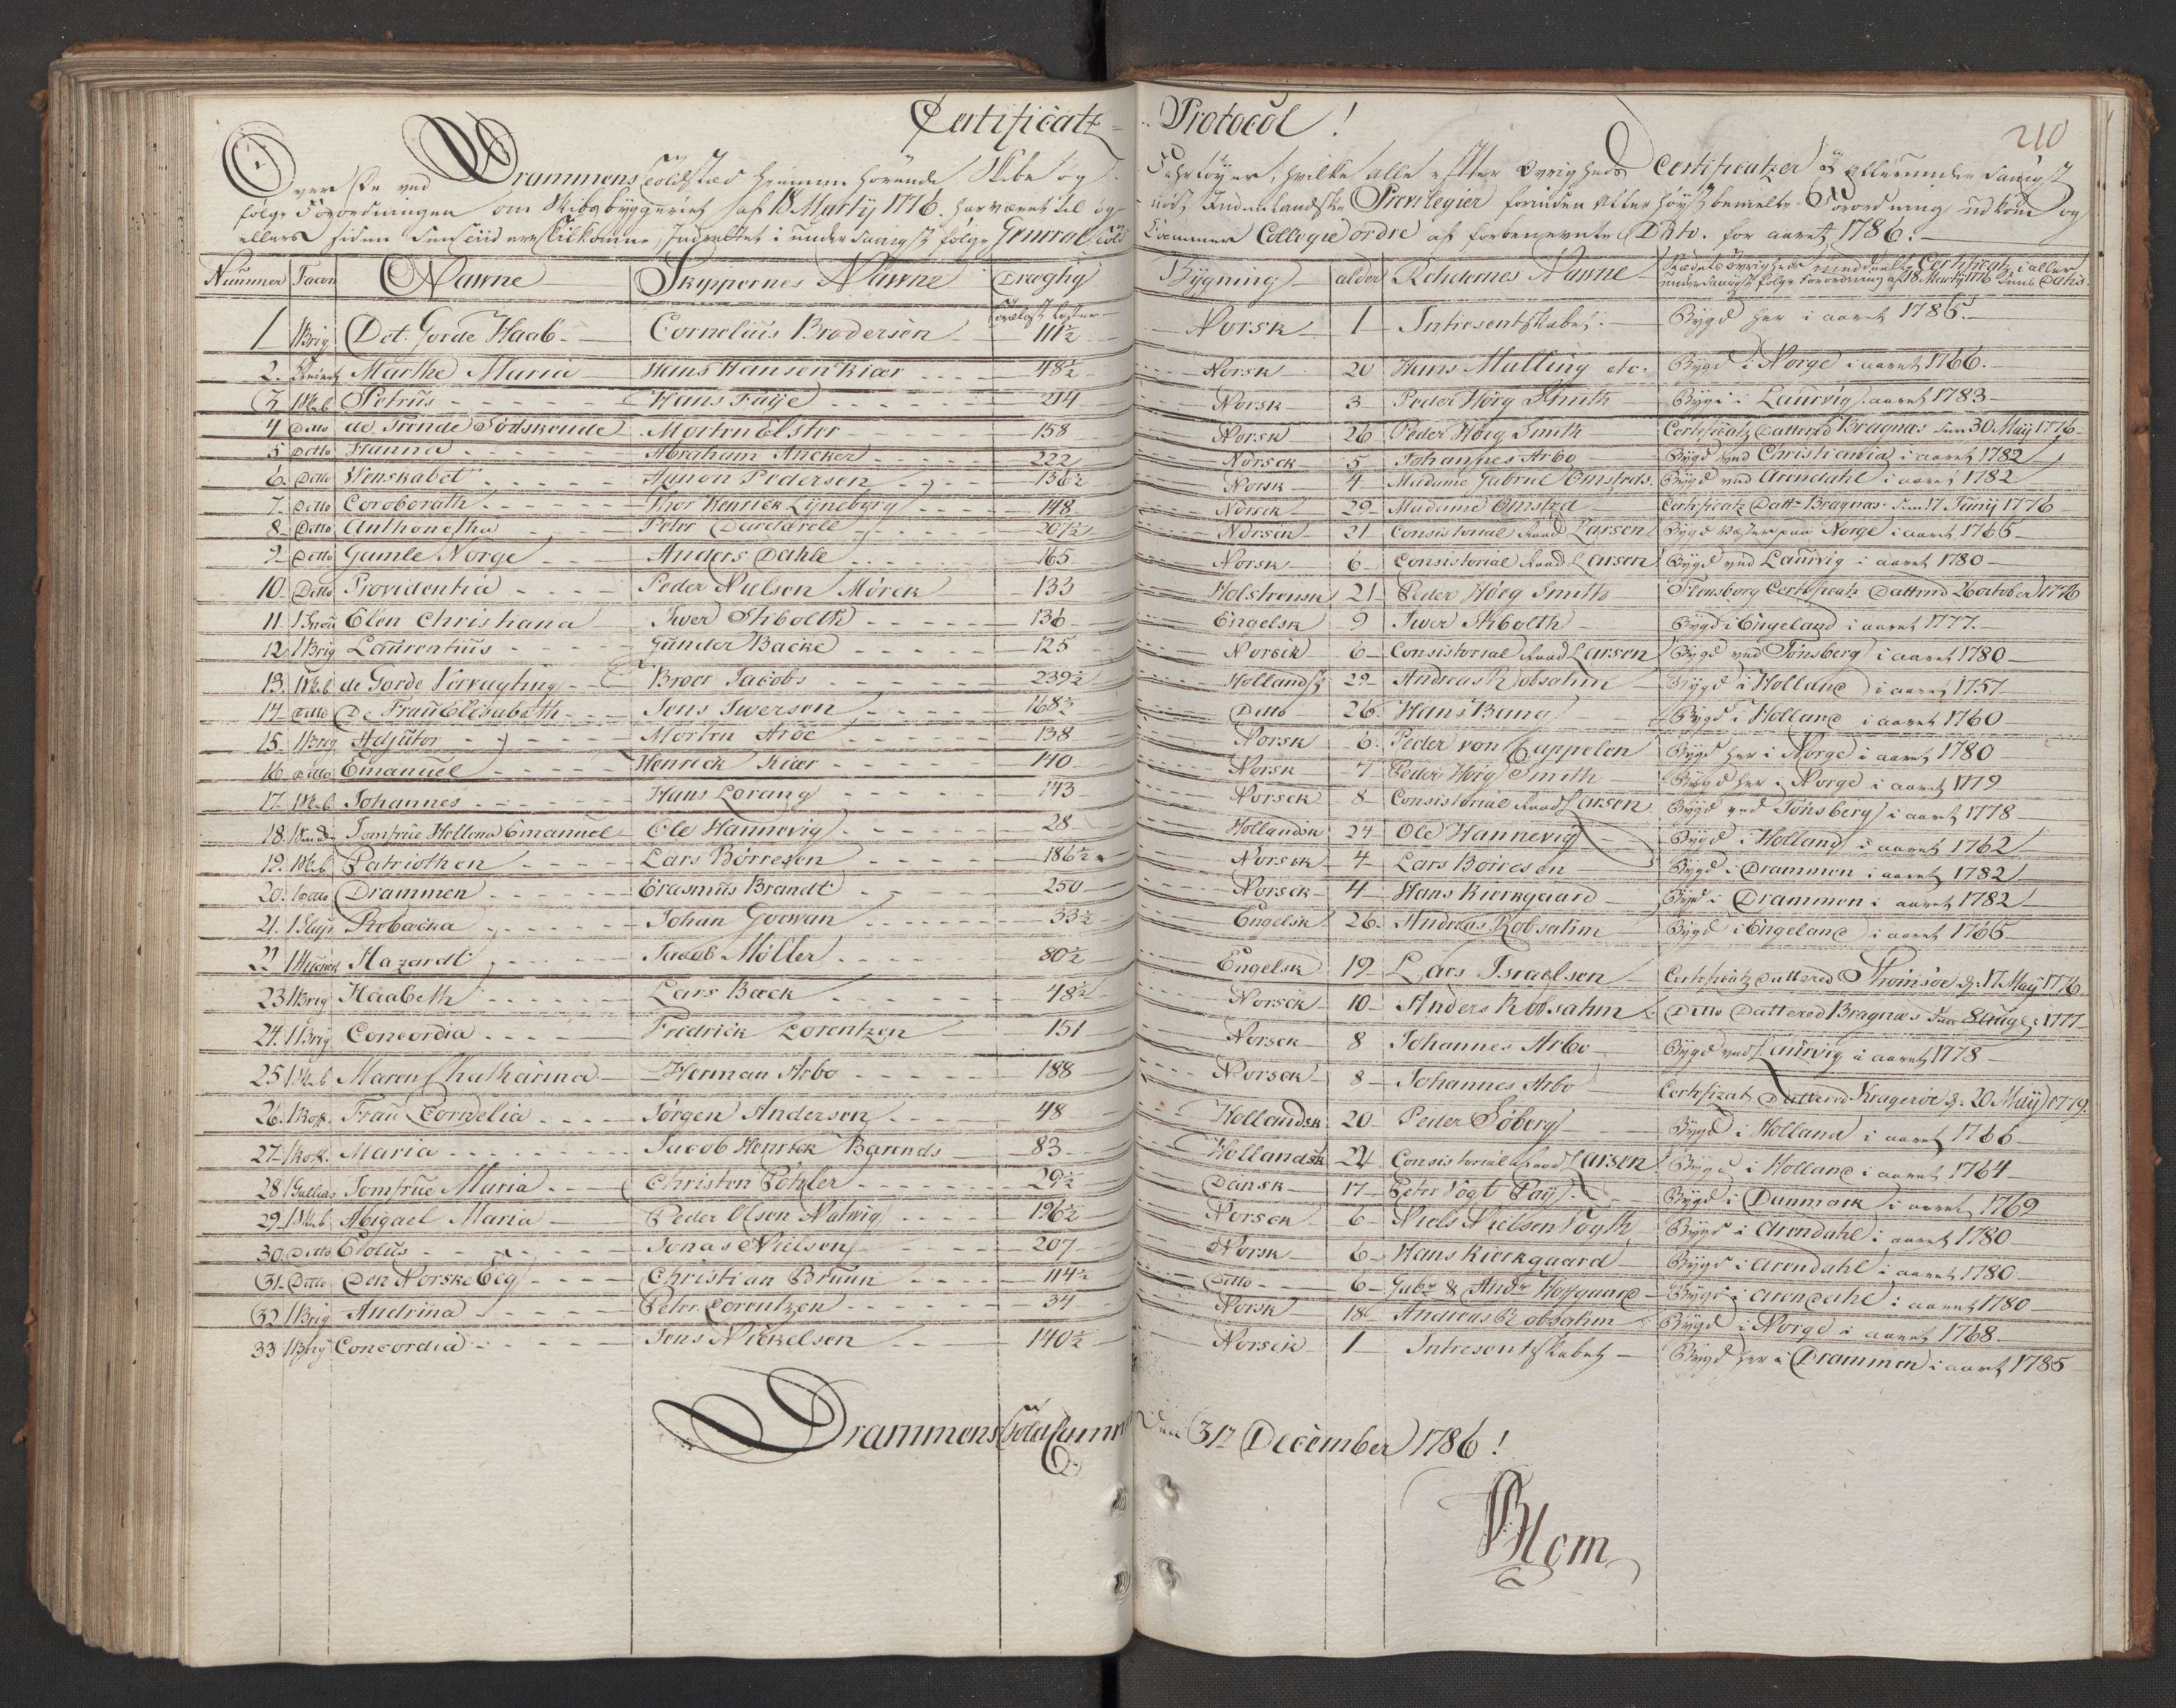 Certificatz-Protocol!
210
Over De ved Drammens Toldsted hiemme hørende Skibe og Fahrtøyer, hvilke alle efter Øvrigheds Certificatzer i allerunderdanigst
følge Forordningen om Skibsbyggeriet af 18 Martij 1776. har været til og nødt Indenlandske Privilegier forinden efter høystbemelte Forordning udkom og
ellers siden ere tilkomne, Indrettet i underdanigst følge General Told Cammer Collegie ordre af forbenevnte Dato. for aaret 1786.
Nummer Facon Nawne Skyppernes Nawne Dragtig Bÿgning alder Rehdernes Nawne Certificatz i aller
underdanigst følge Forordning af 18 Martij 1776 Dens Datis
Læster
1 1 Brig Det Gorde Haab Cornelius Brodersen 111½ Norsk 1 Intresentskabet Bygd her i aaret 1785
2 Marthe Maria Hans Hansen Kiær 48½ Norsk 20 Hans Malling etc. Bygd i Norge i aaret 1766
3 1 Skib Petrus Hans Faÿe 214 Norsk 3 Peder Hørg Smith Bygd i Laurvig i aaret 1783
4 Ditto de Trende Sødskende Morten Elster 158 Norsk 26 Peder Hørg Smith Certificatz Datterd Bragnæs den 30 Maÿ 1776
5 Ditto Hanna Abraham Ancker 222 Norsck 5 Johannes Arbo Bygd ved Christiania i aaret 1782
6 Ditto Venskabet Aanon Pedersen 136½ Norsk 4 Madame Gabriel Omsteds Bygd ved Arendahl i aaret 1782
7 Ditto Coroborath Thor Henrich Lÿneborg 148 Norsck 29 Madame Omsted Certificatz Datt. Bragnæs den 17 Junÿ 1776
8 Ditto Anthonetha Peter 207½ Norsch 21 Consistorial Raad Larsen Bygd Vesterpaa Norge i aaret 1765
9 Ditto Gamle Norge Anders Dahle 165 Norsk 6 Consistorial Raad Larsen Bygd ved Laurvig i aaret 1780
10 Ditto Providentia Peder Nielsen Mörck 133 Holstensk 21 Peder Hørg Smith Flensborg Certificatz Datterd 26 october 1776
11 1 Snou Elen Christiana Iwer Stibolth 136 Engelsk 9 Iwer Stibolth Bygd i Engeland i aaret 1777
12 1 Brig Laurentius Gunder Backe 125 Norsck 6 Consistorial Raad Larsen Bygd ved Tönsberg i aaret 1780
13 1 Skib de Gorde Vervagting Broer Jacobs 239½ Hollandsk 29 Andreas Robsahm Bygd i Holland i aaret 1757
14 Ditto De Frau Elisabeth Jens Iwersen 168½ Ditto 26 Hans Bang Bygd i Holland i aaret 1760
15 1 Brig Adjutor Morten Aröe 138 Norsk 6 Peder von Cappelen Bygd her i Norge i aaret 1780
16 Ditto Emanuel Henrick Kiær 140 Norsk 7 Peder Hørg Smith Bygd her i Norge i aaret 1779
17 1 Skib Johannes Hans Lorang 143 Norsck 8 Consistorial Raad Larsen Bygd ved Tönsberg i aaret 1778
18 Jomfrue Hellena Emanuel Ole Hannevig 28 Hollandsk 24 Ole Hannevig Bygd i Holland i aaret 1762
19 1 Skib Patriothen Lars Börresen 186½ Norsck 4 Lars Börresen Bygd i Drammen i aaret 1782
20 1 Ditto Drammen Erasmus Brandt 250 Norsck 4 Hans Kierkgaard Bygd i Drammen i aaret 1782
21 1 Slup Robacka Johan Goowan 33½ Engelsk 26 Andreas Robsahm Bygd i Engeland i aaret 1765
22 Hazardt Jacob Möller 80½ Engelsk 19 Lars Israelsen Certificatz Dattered Thomsöe d. 17 Maÿ 1776
23 1 Brig Haabeth Lars Bæck 48½ Norsck 10 Anders Robsahm Ditto Dattered Bragnæs den 8 Aug 1777
24 1 Brig Concordia Fredrick Lorentzen 151 Norsck 8 Johannes Arbo Bygd ved Laurvig i aaret 1778
25 1 Skib Maren Chatharina Herman Arbo 188 Norsck 8 Johannes Arbo Certificatz Datterd Krageröe d. 20 Maÿ 1779
26 1 Kof. Frau Cornelia Jörgen Andersen 48 Hollandsk 20 Peder Söberg Bygd i Holland i aaret 1766
27 1 Kof. Maria Jacob Henrick Barends 83 Hollandsk 22 Consistorial Raad Larsen Bygd i Holland i aaret 1764
28 1 Gallias Jomfrue Maria Christen Petzler 29½ Dansk 17 Peter Vogt Faÿ Bygd i Danmark i aaret 1769
29 1 Skib Abigael Maria Peder Olsen Natwig 196½ Norsck 6 Niels Nielsen Vogth Bygd i Arendahl i aaret 1780
30 Ditto Eolus Jonas Nielsen 207 Norsk 6 Hans Kierkgaard Bygd i Arendahl i aaret 1780
31 Ditto Den Norske Eeg Christian Bruun 114½ Ditto 6 Gabr. & Andr. Hofgaard Bygd i Arendahl i aaret 1780
32 1 Brig Andrina Peter Lorentzen 34 Norsk 18 Andreas Robsahm Bygd i Norge i aaret 1768
33 1 Brig Concordia Jens Nickelsen 140½ Norsck 1 Intresentskabet Bygd her i Drammen i aaret 1785
Drammens Told Cammer Den 31 December 1786!
Blom